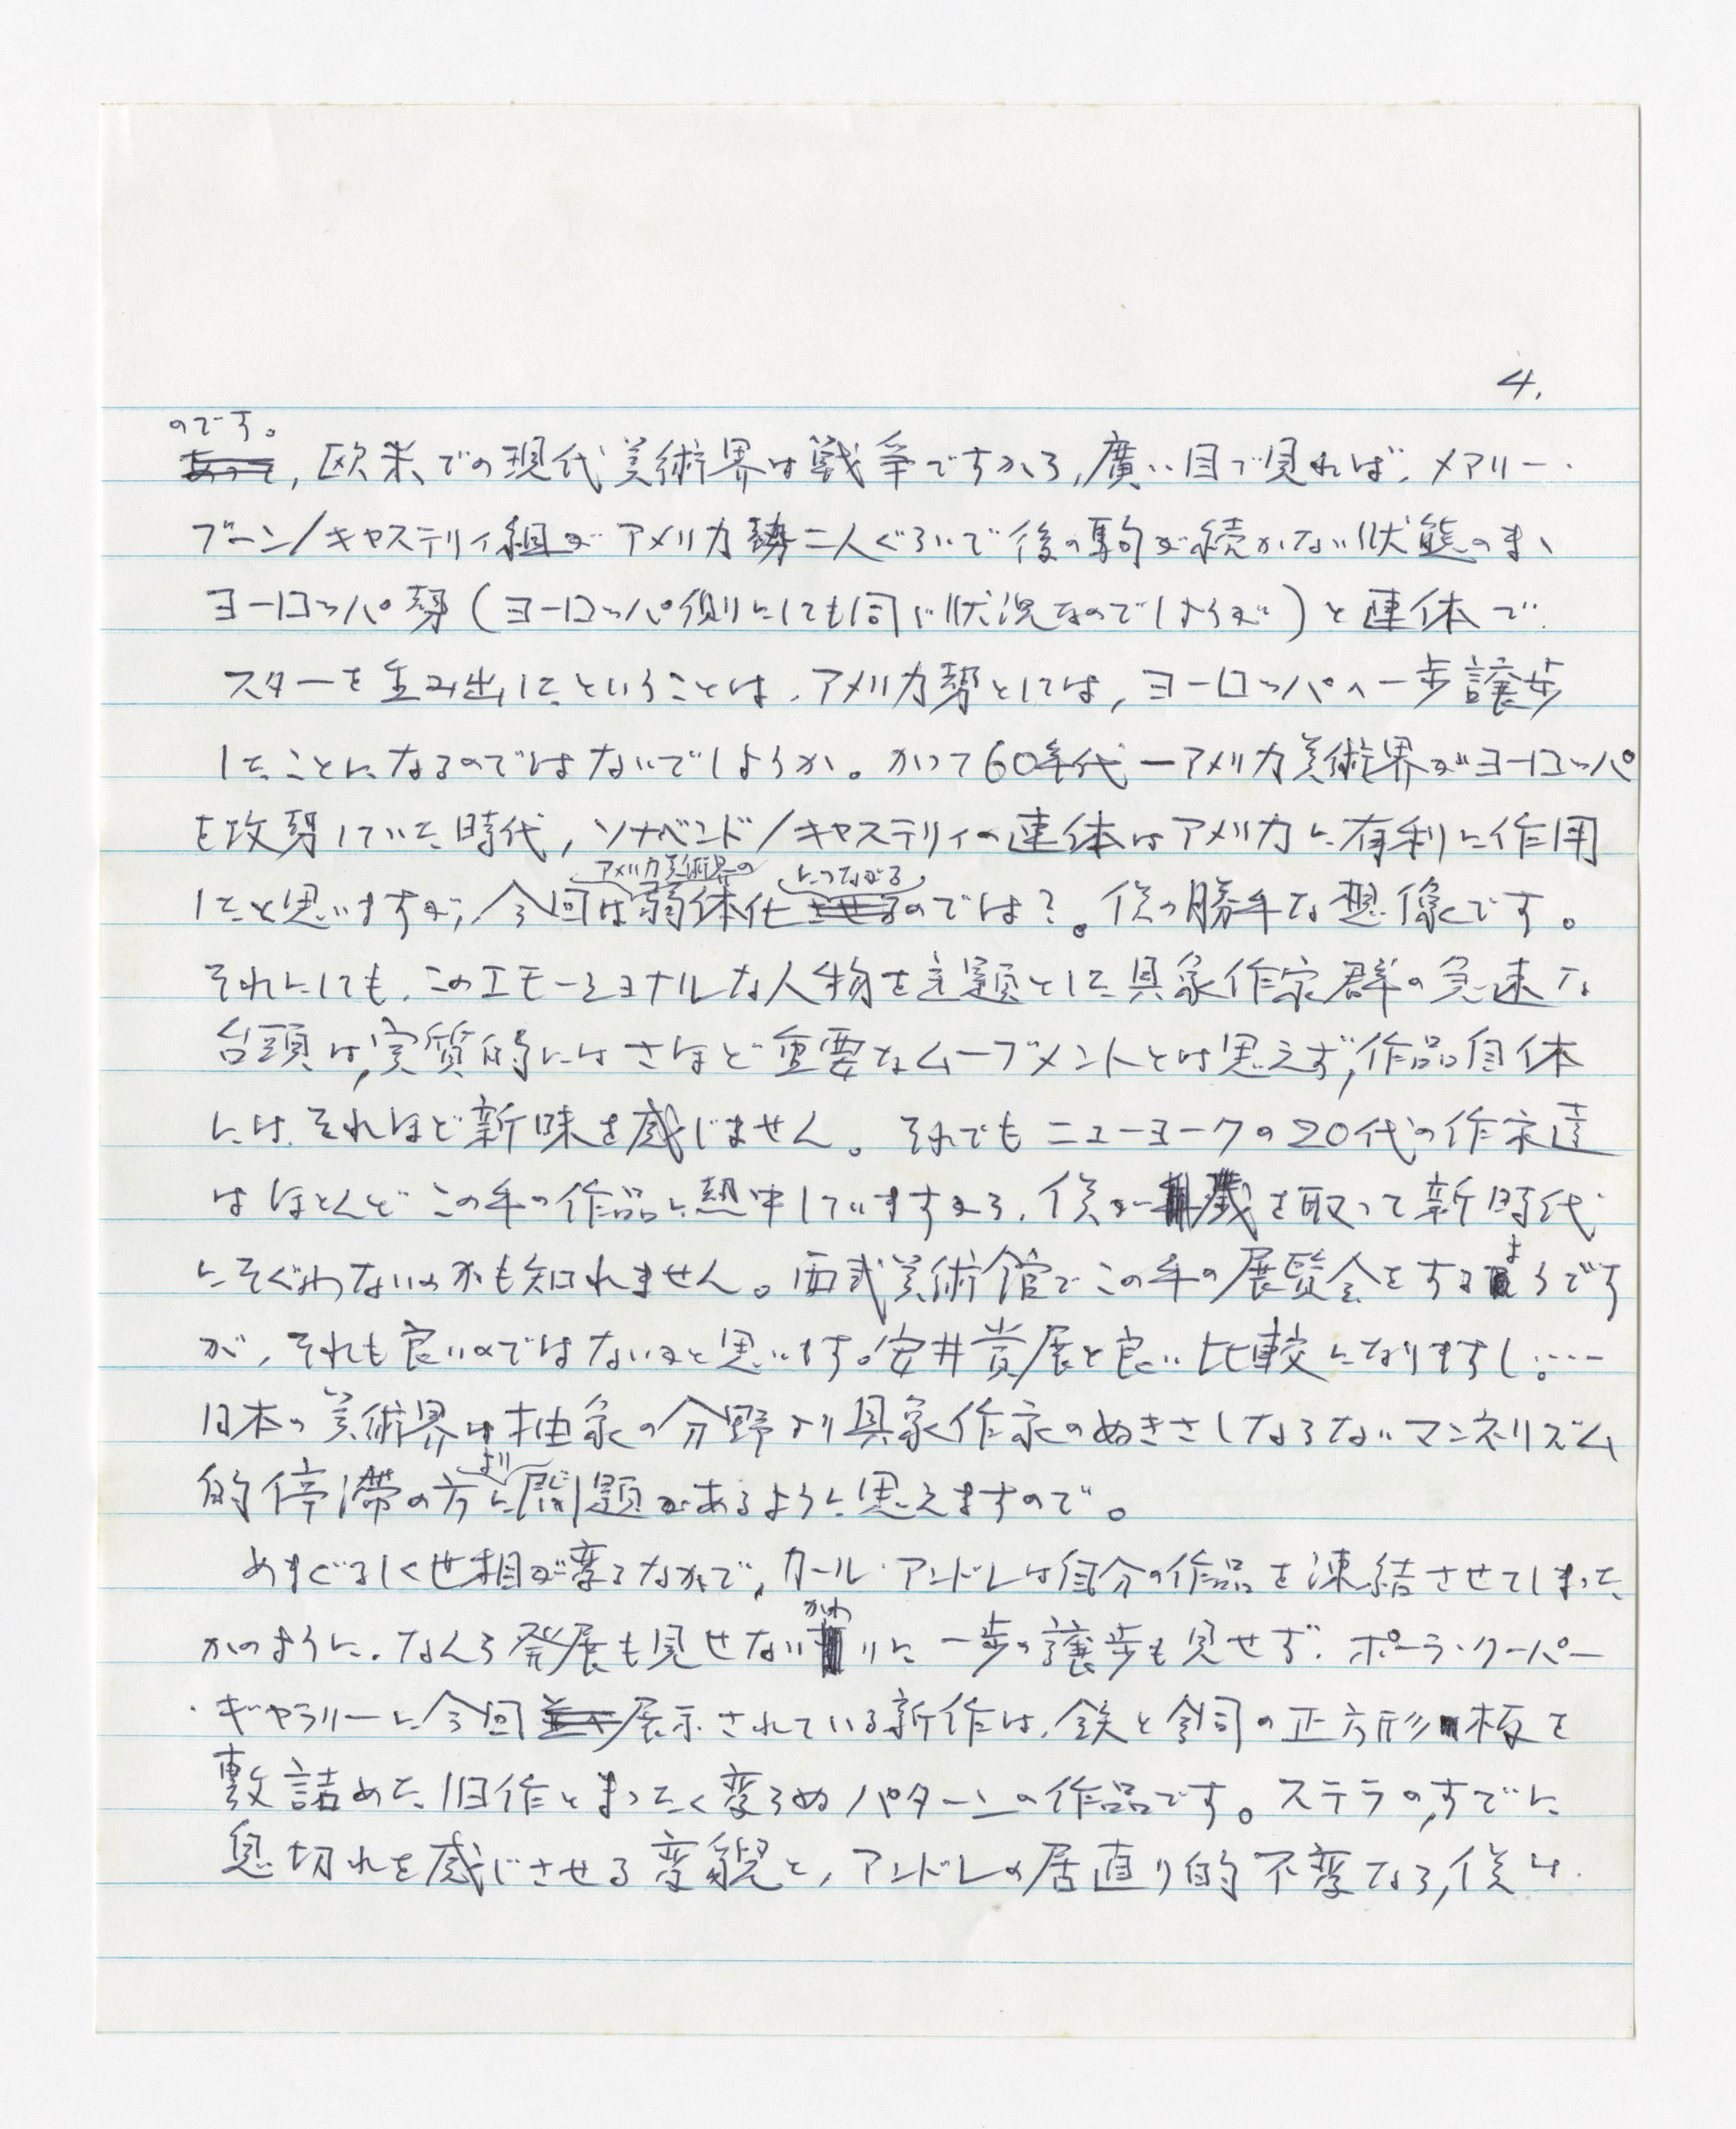 4.
のです。
あって, 欧米での現代美術界は戦争ですから, 廣い目で見れば, メアリー・
ブーン/キャステリィ組がアメリカ勢二人ぐらいで後の駒が続かない状態のまゝ
ヨーロッパ勢(ヨーロッパ側にしても同じ状況なのでしょうが)と連体で
スターを生み出したということは, アメリカ勢としては, ヨーロッパへ一歩譲歩
したことになるのではないでしょうか。かつて60年代ーアメリカ美術界がヨーロッパ
を攻勢していた時代, ソナベンド/キャステリィの連体はアメリカに有利に作用
アメリカ美術界の につながる
したと思いますが, 今回は弱体化させるのでは?。僕の勝手な想像です。
それにしても, このエモーショナルな人物を主題とした具象作家群の急速な
台頭は, 実質的にはさほど重要なムーブメントとは思えず, 作品自体
には, それほど新味を感じません。それでもニューヨークの20代の作家達
はほとんどこの手の作品に熱中していますから, 僕が歳を取って新時代
にそぐわないのかも知れません。西武美術館でこの手の展覧会をするようです
が, それも良いのではないかと思います。安井賞展と良い比較になりますし.…
日本の美術界は抽象の分野より具象作家のぬきさしならないマンネリズム
的停滞の方により問題があるように思えますので。
めまぐるしく世相が変るなかで, カール・アンドレは自分の作品を凍結させてしまった
かのように, なんら発展も見せないかわりに一歩の譲歩も見せず, ポーラ・クーパー
・ギャラリーに今回展示されている新作は, 鉄と銅の正方形板を
敷詰めた旧作とまったく変らぬパターンの作品です。ステラの, すでに
息切れを感じさせる変貌と, アンドレの居直り的不変なら, 僕は